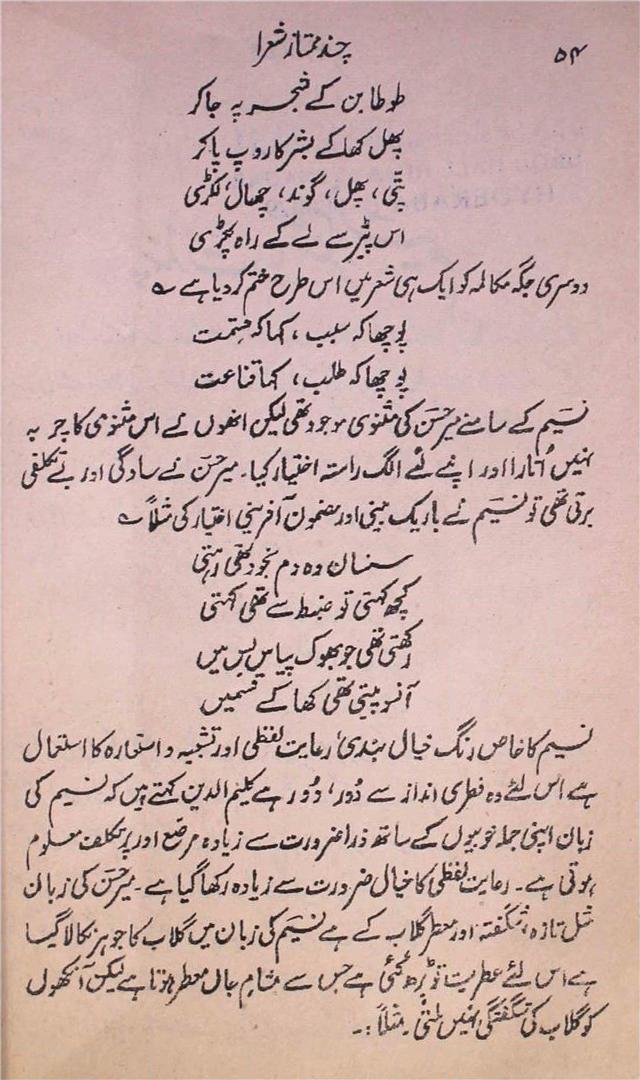 ۵۴ چند ممتاز شعرا
طوطا بن کے شجر پہ جا کر
پھل کھا کے بشر کا روپ پا کر
پتّی، پھل، گوند، چھال، لکڑی
اس پیڑ سے لے کے راہ پکڑی
دوسری جگہ مکالمہ کو ایک ہی شعر میں اس طرح ختم کر دیا ہے ؎
پوچھا کہ سبب، کہا کہ قسمت
پوچھا کہ طلب، کہا قناعت
نسیم کے سامنے میر حسن کی مثنوی موجود تھی لیکن انھوں نے اس مثنوی کا چربہ
نہیں اُتارا اور اپنے لئے الگ راستہ اختیار کیا۔ میر حسن نے سادگی اور بے تکلفی
برتی تھی تو نسیم نے باریک بینی اور مضمون آفرینی اختیار کی مثلاً ؎
سنسان وہ دم بخود تھی رہتی
کچھ کہتی تو ضبط سے تھی کہتی
رکھتی تھی جو بھوک پیاس بس میں
آنسو پیتی تھی کھا کے قسمیں
نسیم کا خاص رنگ خیال بندی، رعایت لفظی اور تشبیہ و استعارہ کا استعمال
ہے اس لئے وہ فطری انداز سے دُور، دُور ہے کلیم الدین کہتے ہیں کہ نسیم کی
زبان اپنی جملہ خوبیوں کے ساتھ ذرا ضرورت سے زیادہ مرصّع اور پر تکلف معلوم
ہوتی ہے۔ رعایت لفظی کا خیال ضرورت سے زیادہ رکھا گیا ہے۔ میر حسن کی زبان
مثل تازہ، شگفتہ اور معطر گلاب کے ہے نسیم کی زبان میں گلاب کا جوہر نکالا گیا
ہے اس لئے عطریت تو بڑھ گئی ہے جس سے مشامِ جاں معطر ہوتا ہے لیکن آنکھوں
کو گلاب کی شگفتگی نہیں ملتی۔ مثلاً :۔